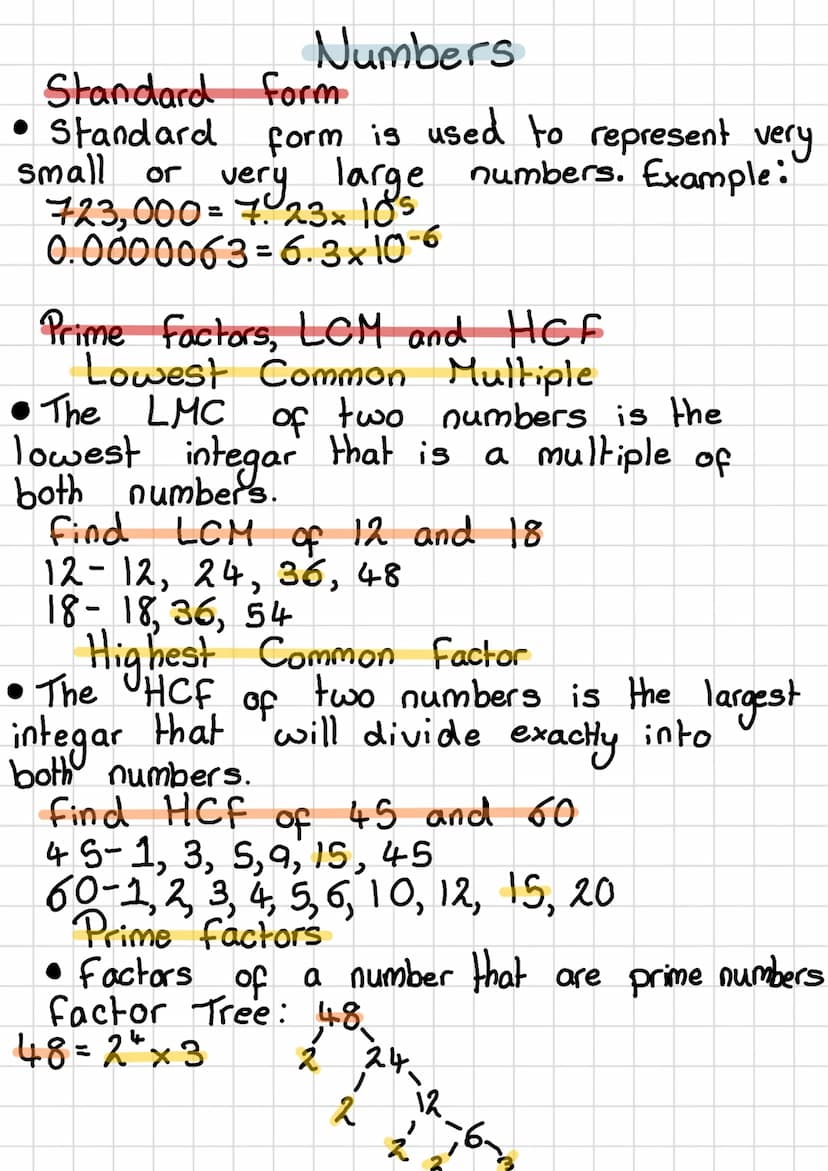 Numbers
Standard form
• Standard form is used to represent very
small or very large numbers. Example:
723,000 = 7.23x 10⁵
0.0000063 = 6.3x10⁻⁶
Prime factors, LCM and HCF
Lowest Common Multiple
• The LMC of two numbers is the
lowest integar that is a multiple of
both numbers.
find LCM of 12 and 18
12- 12, 24, 36, 48
18- 18, 36, 54
Highest Common factor
• The HCF of two numbers is the largest
integar that will divide exactly into
both numbers.
find HCF of 45 and 60
45-1, 3, 5, 9, 15, 45
60-1, 2, 3, 4, 5, 6, 10, 12, 15, 20
Prime factors
• factors of a number that are prime numbers
factor Tree: 48
48 = 2⁴ x 3
2 24
2 12
2 6
2 3